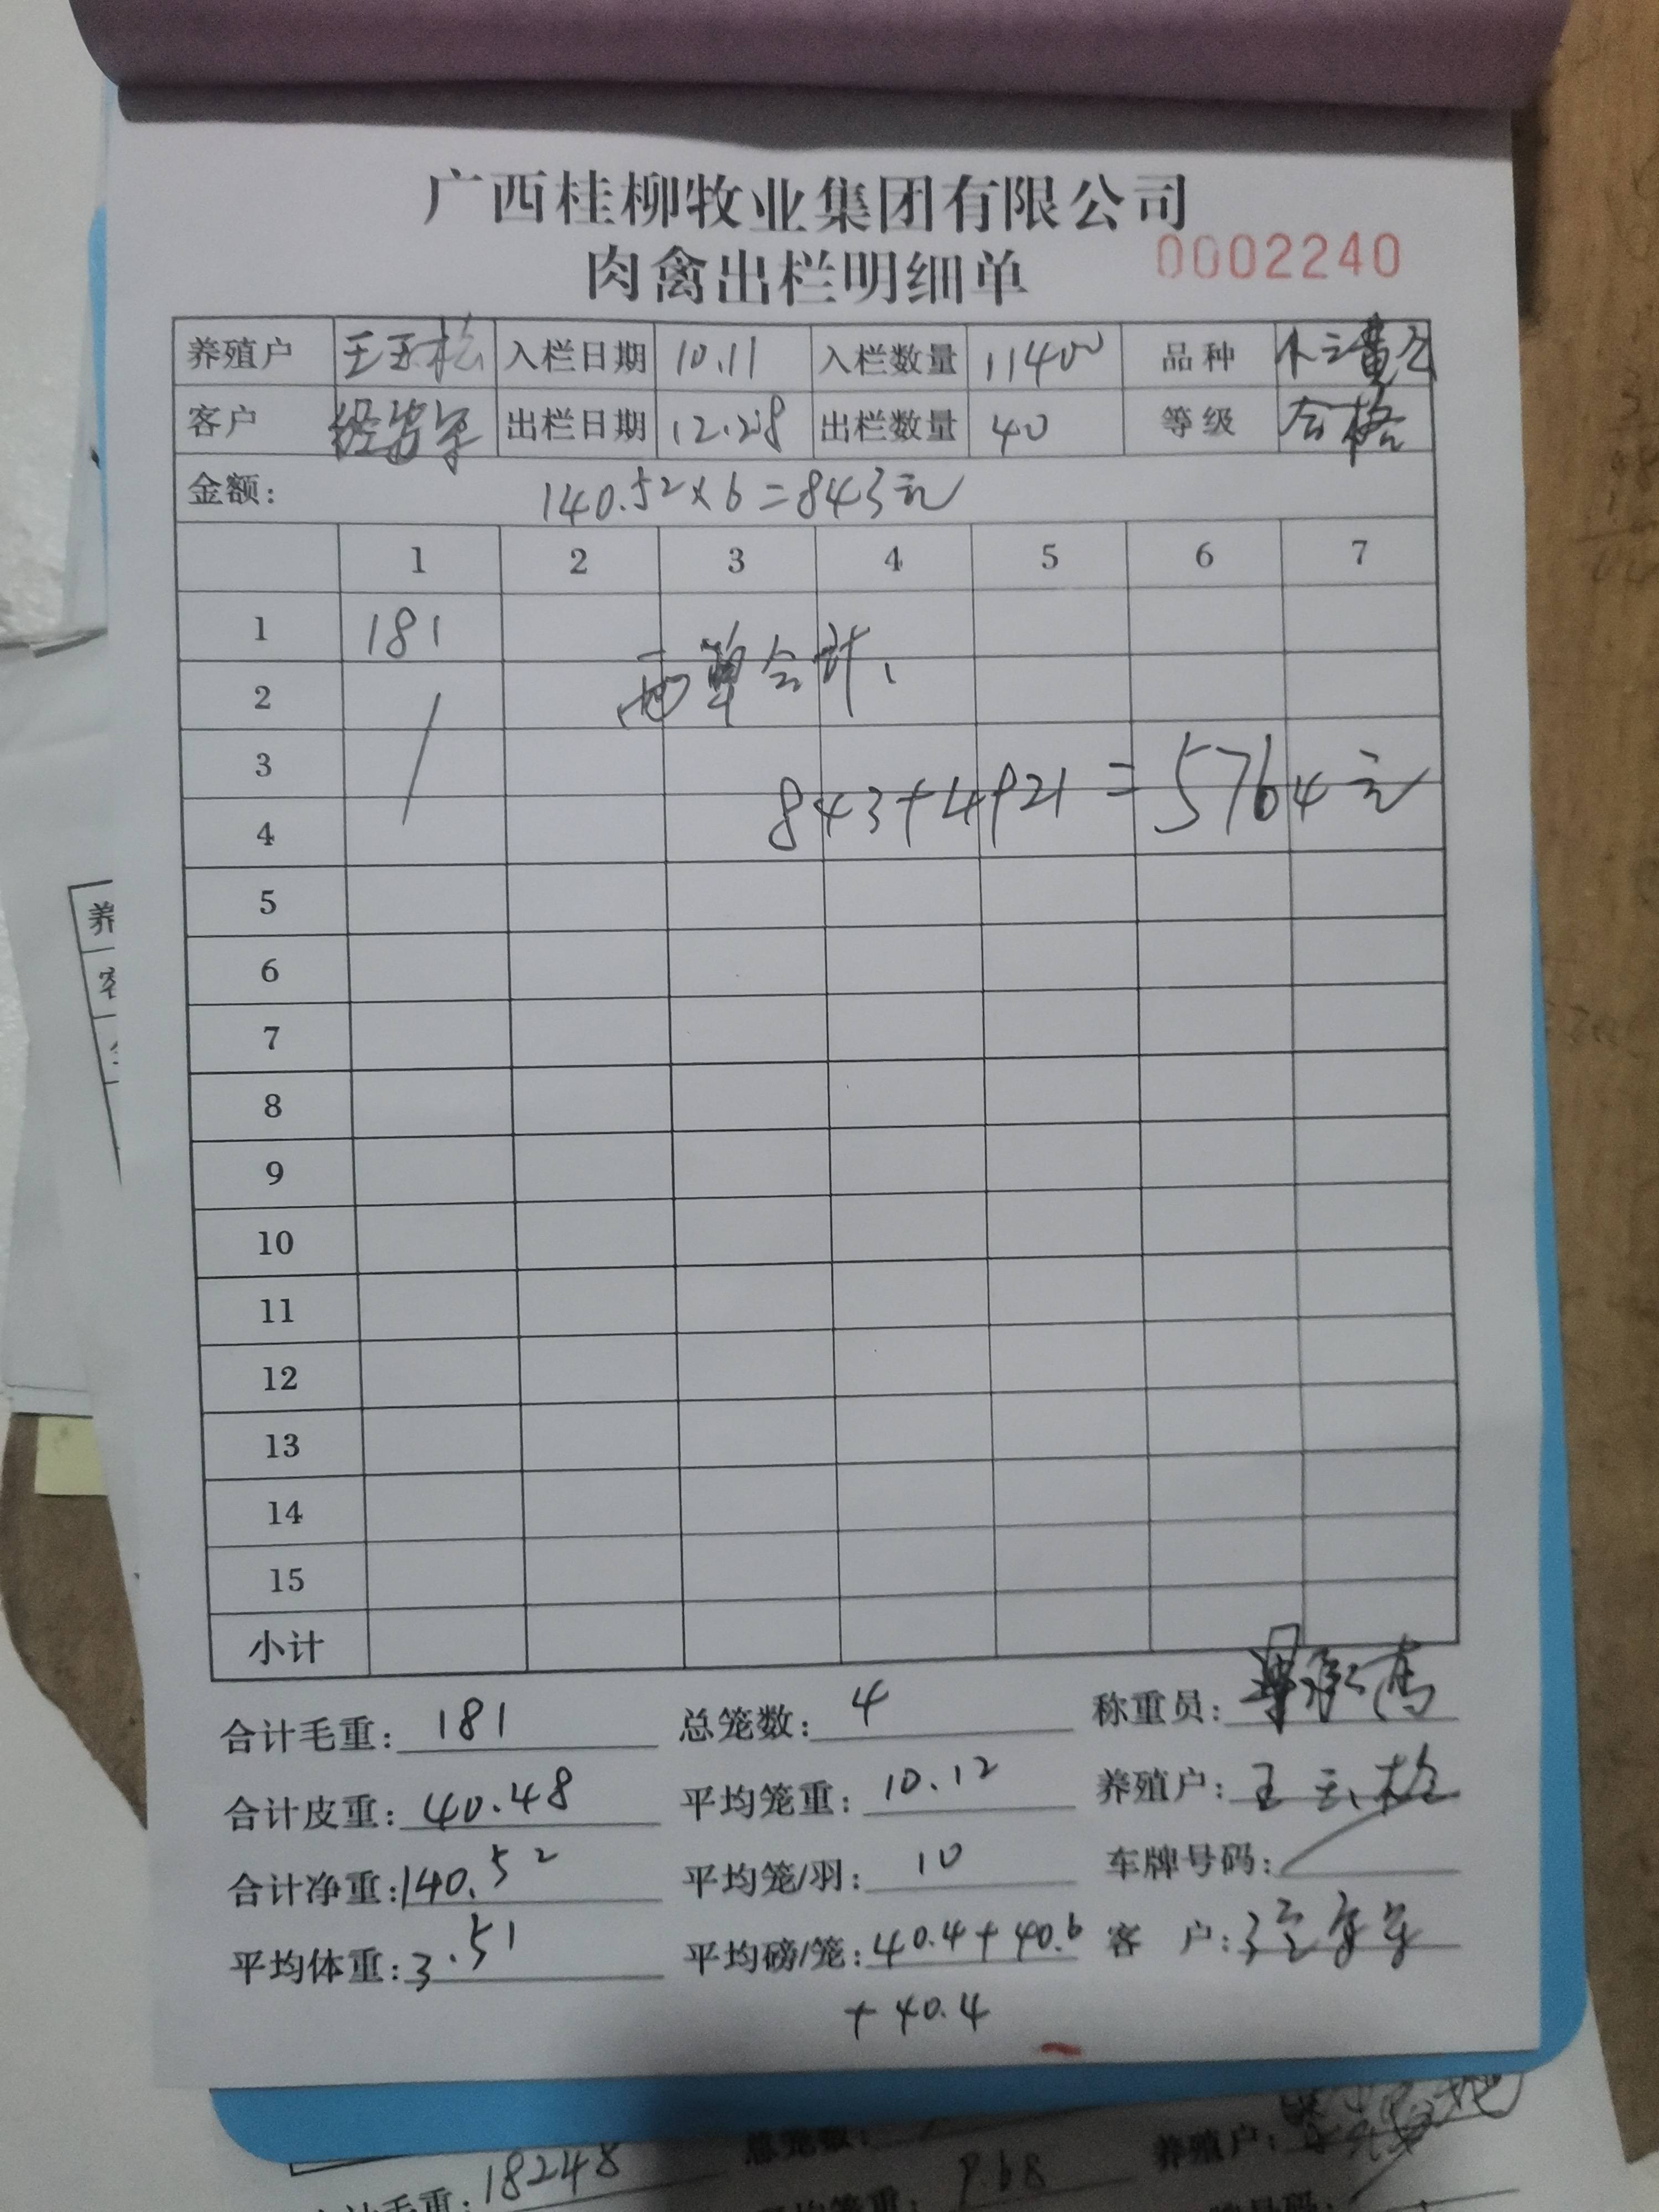 广西桂柳牧业集团有限公司
肉禽出栏明细单 0002240
养殖户 王玉松 入栏日期 10.11 入栏数量 11400 品种
客户 出栏日期 12.28 出栏数量 40 等级 合格
金额: 140.52×6=843元
1 2 3 4 5 6 7
1 181
两单合计、
2
3
843+4921=5764元
4
5
6
7
8
9
10
11
12
13
14
15
小计
合计毛重: 181 总笼数: 4 称重员:
合计皮重: 40.48 平均笼重: 10.12 养殖户: 王玉松
合计净重: 140.52 平均笼/羽: 10 车牌号码:
平均体重: 3.51 平均磅/笼: 40.4+40.6 客 户:
+40.4
养
客
18248
9.68
养殖户: